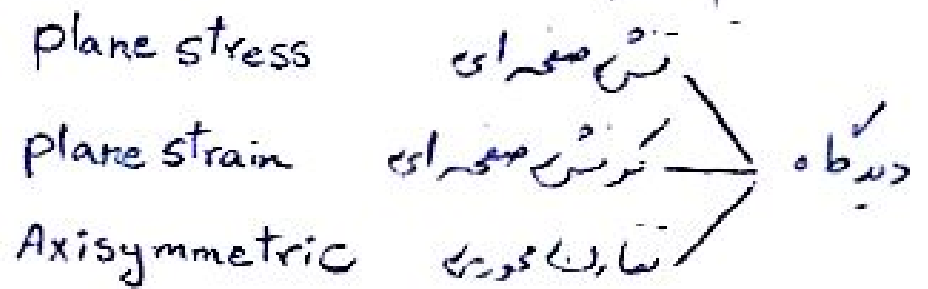 plane stress تنش صفحه ای
plane strain کرنش صفحه ای دیدگاه
Axisymmetric تقارن محوری